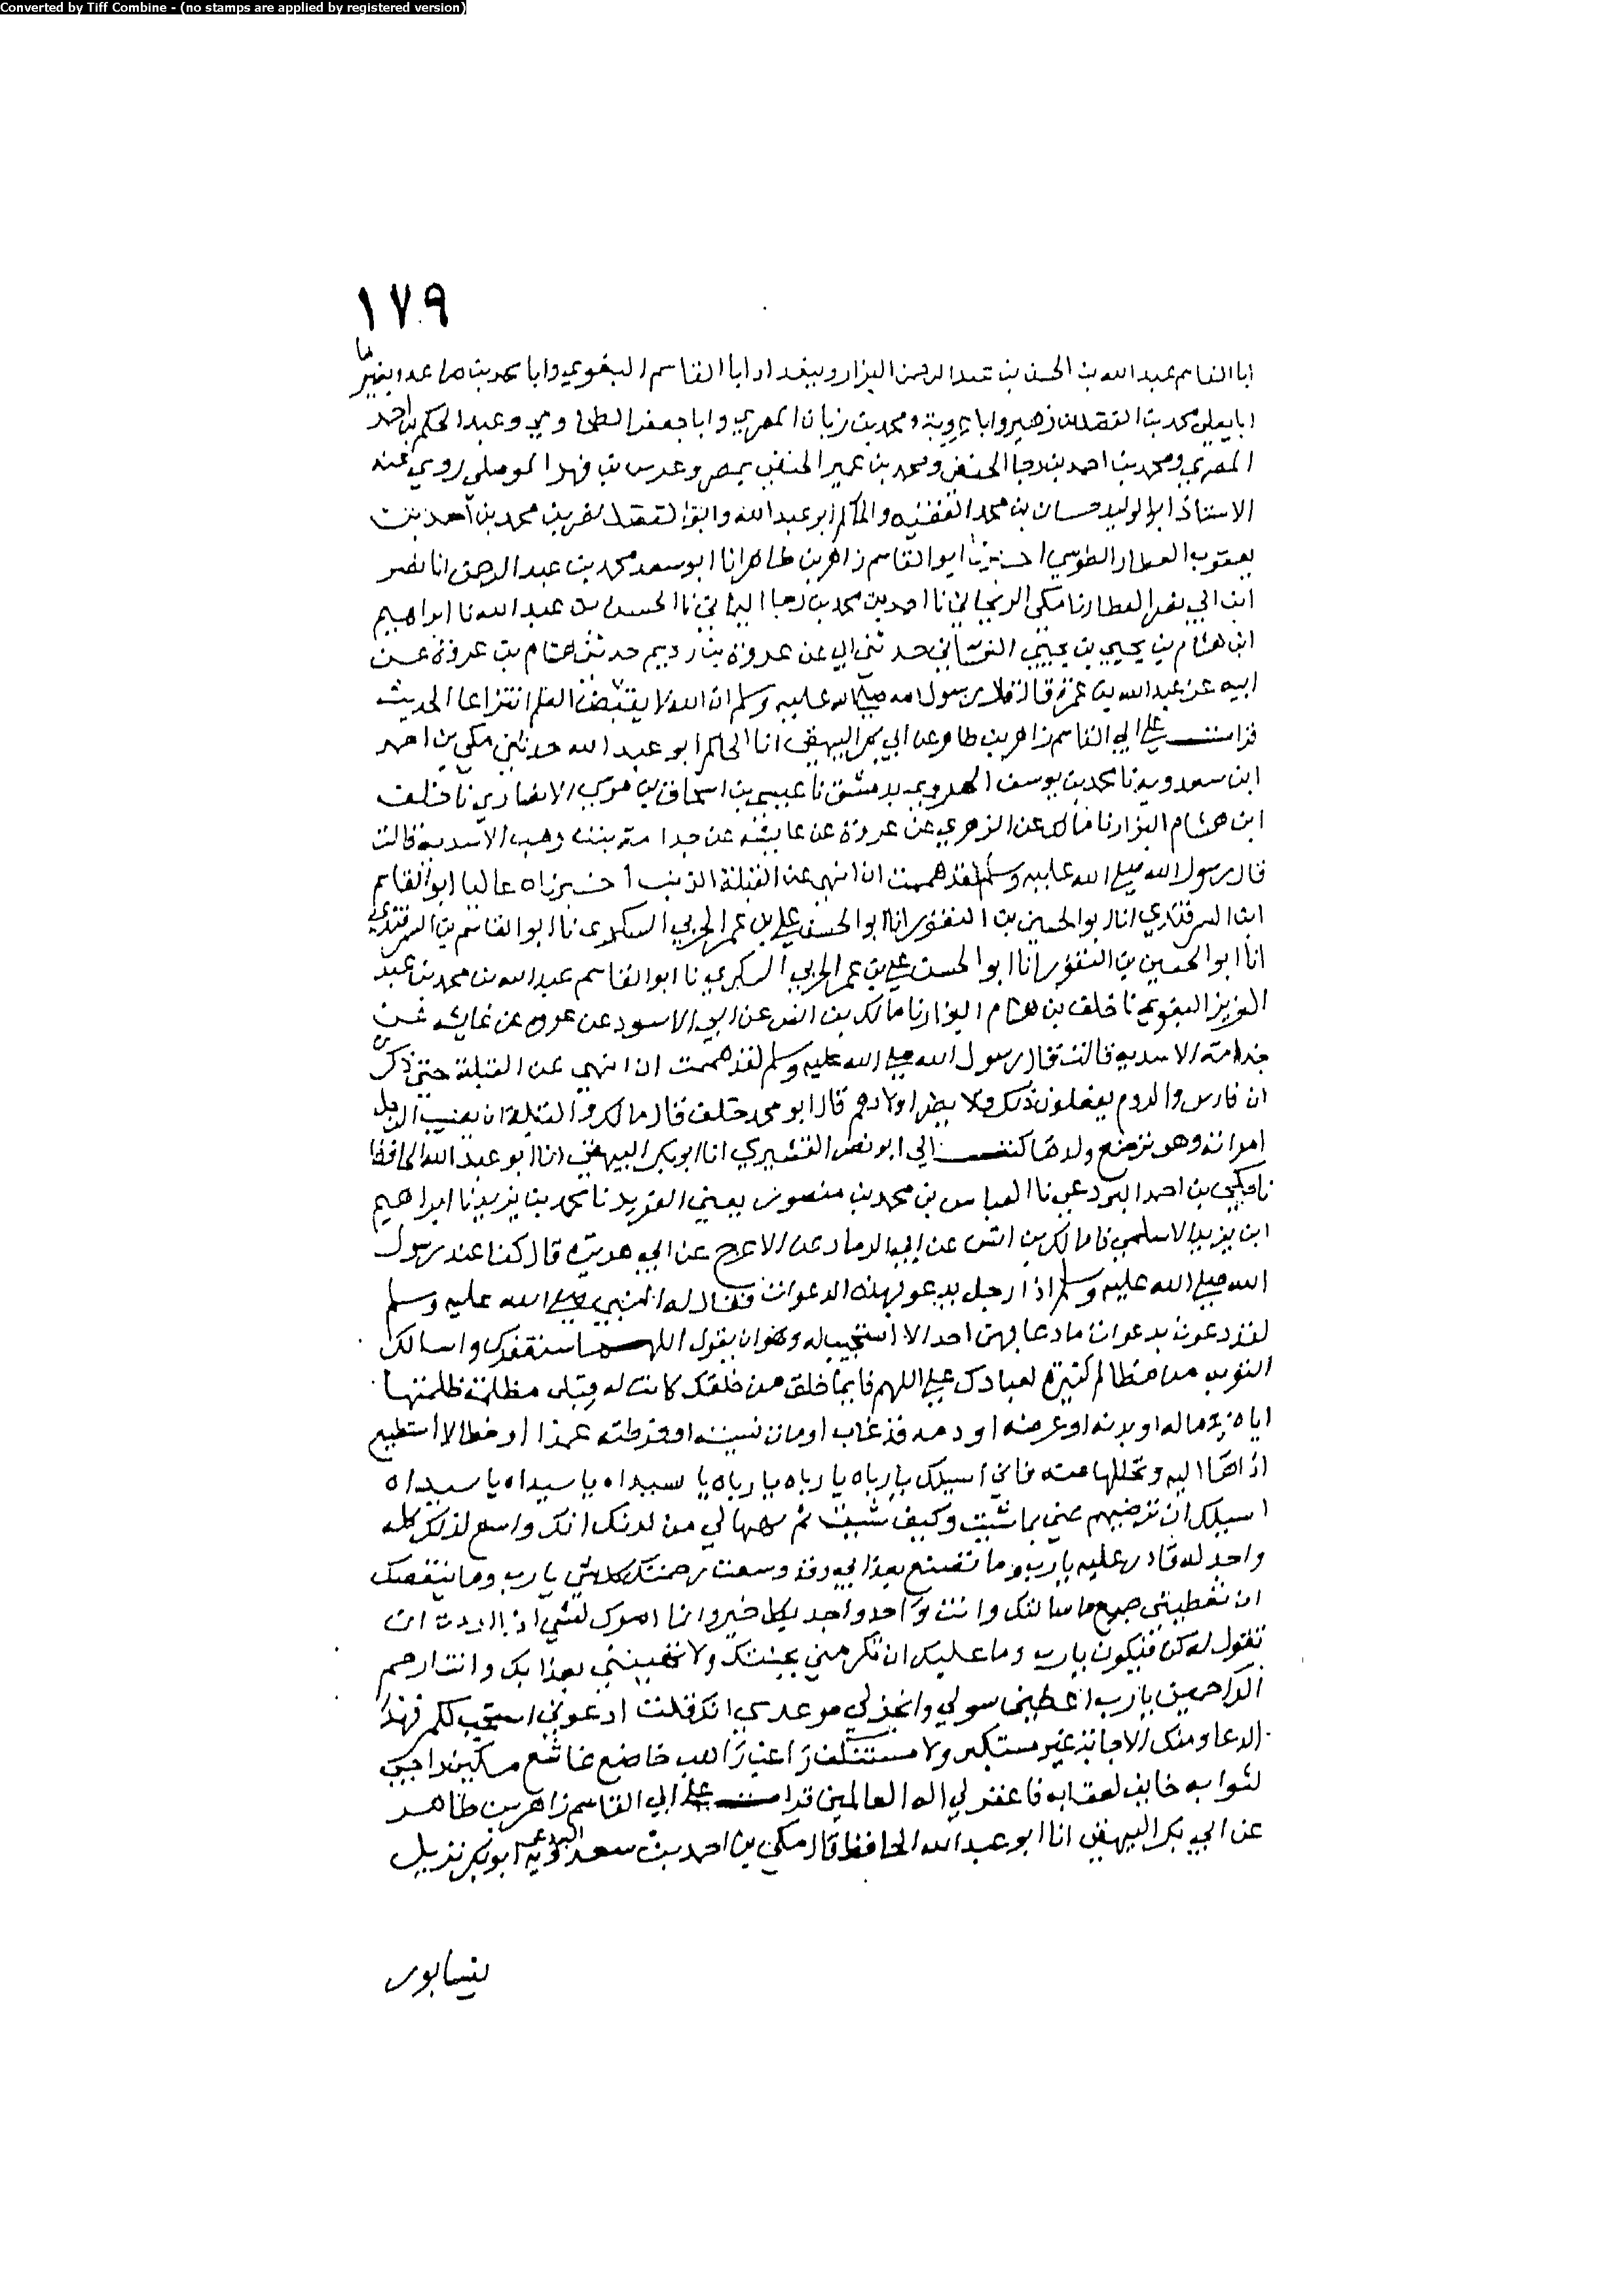 Converted by Tiff Combine - (no stamps are applied by registered version)
١٧٩
ابا القاسم عبد الله بن الحسن بن عبد الرحمن البزار وببغداد ابا القاسم البغوي وابا محمد بن صاعد وبغيرهما
ابا يعلى محمد بن الفضل بن زهير وابا عروبة ومحمد بن زبان المصري وابا جعفر الطحاوي وعبد الحكم بن احمد
المصري ومحمد بن احمد بن رجا الحنفي ومحمد بن عمير الحنفي بمصر وعدس بن فهد الموصلي روى عنه
الاستاذ ابو الوليد حسان بن محمد الفقيه والحاكم ابو عبد الله وابو الفضل نصر بن محمد بن احمد بن
يعقوب العطار الطوسي اخبرنا ابو القاسم زاهر بن طاهر انا ابو سعد محمد بن عبد الرحمن انا نصر
ابن ابي نصر العطار نا مكي الريحاني نا احمد بن محمد بن رجا اليماني نا الحسن بن عبد الله نا ابراهيم
ابن هشام بن يحيى بن يحيى الغساني حدثني ابي عن عروة بن رديم حدثني هشام بن عروة عن
ابيه عن عبد الله بن عمرو قال قال رسول الله صلى الله عليه وسلم ان الله لا يقبض العلم انتزاعا الحديث
قرات على ابي القاسم زاهر بن طاهر عن ابي بكر البيهقي انا الحاكم ابو عبد الله حدثني مكي بن احمد
ابن سعدويه نا محمد بن يوسف الهروي بدمشق نا عيسى بن اسحاق بن موسى الانصاري نا خلف
ابن هشام البزار نا مالك عن الزهري عن عروة عن عايشه عن جدامة بنت وهب الاسدية قالت
قال رسول الله صلى الله عليه وسلم لقد هممت ان انهى عن الغيلة الحديث اخبرناه عاليا ابو القاسم
ابن السمرقندي انا ابو الحسين بن النقور انا ابو الحسن علي بن عمر الحربي السكري نا ابو القاسم بن السمرقندي
انا ابو الحسين بن النقور انا ابو الحسن علي بن عمر الحربي السكري نا ابو القاسم عبد الله بن محمد بن عبد
العزيز البغوي نا خلف بن هشام البزار نا مالك بن انس عن ابي الاسود عن عروه عن عايشه عن
جدامة الاسديه قالت قال رسول الله صلى الله عليه وسلم لقد هممت ان انهى عن الغيلة حتى ذكرت
ان فارس والروم يفعلون ذلك ولا يضر اولادهم قال ابو محمد خلف قال مالك والغيلة ان يصيب الرجل
امراته وهو ترضع ولدها كتب الي ابو نصر القشيري انا ابو بكر البيهقي انا ابو عبد الله الحافظ
نا مكي بن احمد البردعي نا العباس بن محمد بن منصور يعني الفريد نا محمد بن يزيد نا ابراهيم
ابن يزيد الاسلمي نا مالك بن انس عن ابي الزناد عن الاعرج عن ابي هريرة قال كنا عند رسول
الله صلى الله عليه وسلم اذا رجل يدعو بهذه الدعوات فقال له النبي صلى الله عليه وسلم
لقد دعوت بدعوات ما دعا بهن احد الا استجيب له وهو ان يقول اللهم استغفرك واسالك
التوبه من مظالم كثيرة لعبادك علي اللهم فايما خلق من خلقك كانت له قبلي مظلمة ظلمتها
اياه في ماله او بدنه او عرضه او دمه قد غاب او مات نسيته او فرطته عمدا او خطا لا استطيع
اذاها اليه وتحللها منه فاني اسيلك يا رباه يا رباه يا رباه يا سيداه يا سيداه يا سيداه
اسيلك ان ترضيهم عني بما شيت وكيف شيت ثم تهبها لي من لدنك انك واسع لذلك كله
واجد له قادر عليه يا رب وما تصنع بعذابي وقد وسعت رحمتك كل شي يا رب وما ينقصك
ان تعطيني جميع ما سالتك وانت واحد واجد بكل خير وانما امرك لشي اذا اردت ان
تقول له كن فيكون يا رب وما عليك ان تكرمني بجنتك ولا تهينني بعذابك وانت ارحم
الراحمين يا رب اعطني سولي وانجز لي موعدي انك قلت ادعوني استجب لكم فهذا
الدعا ومنك الاجابة غير مستكبر ولا مستنكف راغب راهب خاضع خاشع مسكين راجي
لثوابه خايف لعقابه فاغفر لي اله العالمين قرات على ابي القاسم زاهر بن طاهر
عن ابي بكر البيهقي انا ابو عبد الله الحافظ قال مكي بن احمد بن سعدويه البردعي ابو بكر نزيل
نيسابور